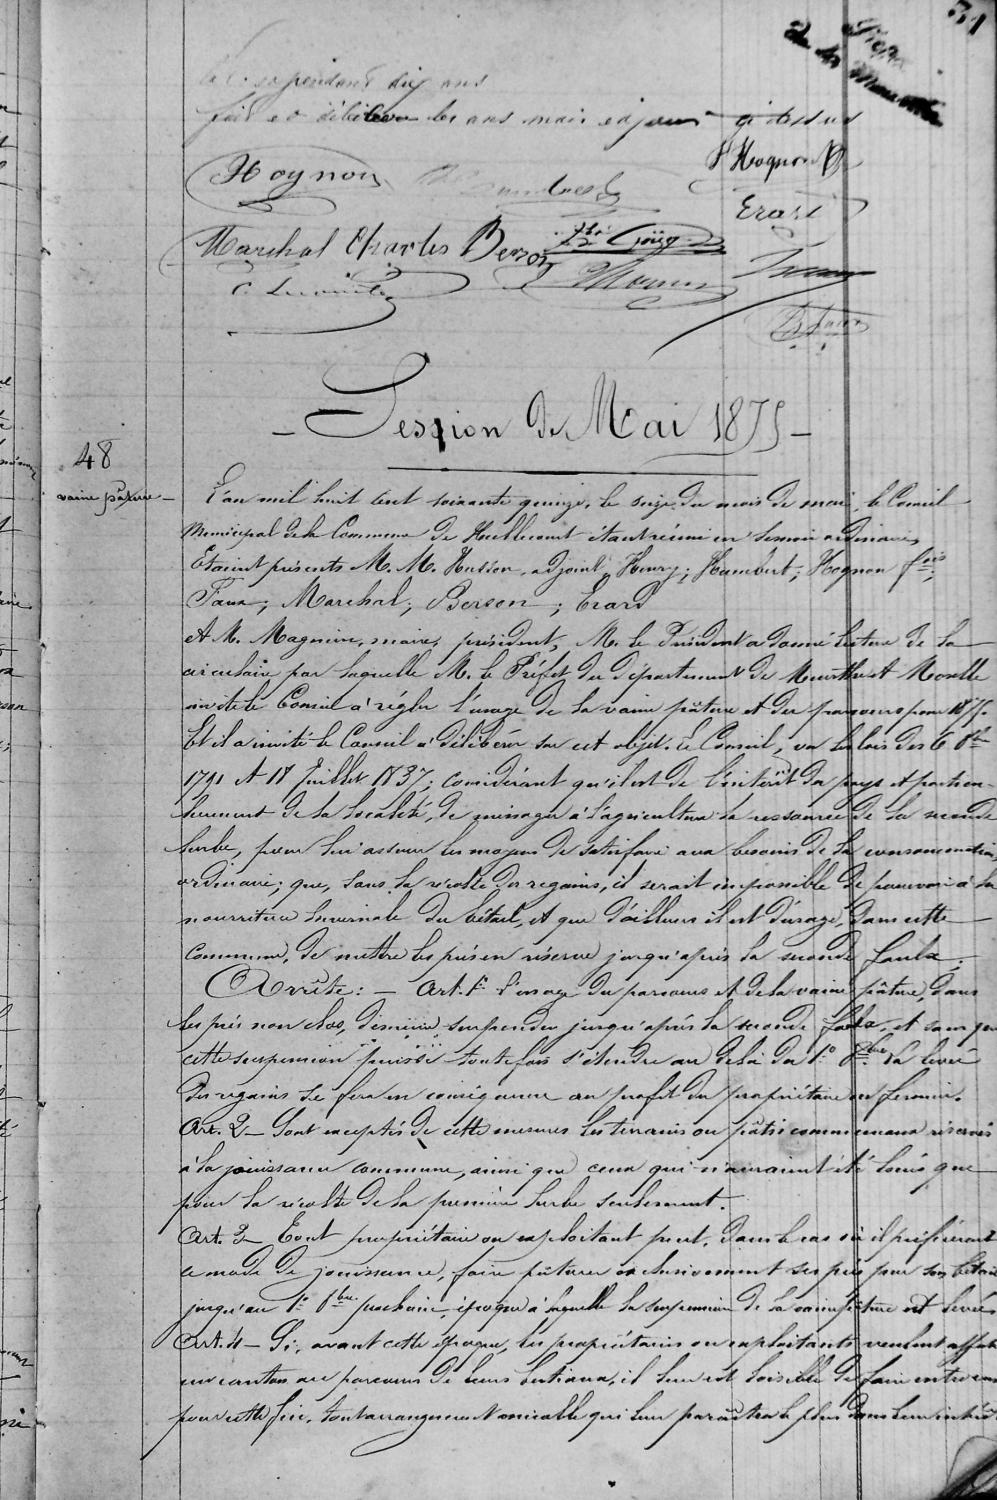 31
pendant dix ans
fait et délibéré les ans mois et jour ci dessus
Hognon
F Hognon
Erard
Marchal Charles Berson
Session de Mai 1875
48
vaine pâture
L'an mil huit cent soixante quinze, le seize du mois de mai, le Conseil
Municipal de la Commune de étant réuni en Session ordinaire,
Etaient présents M. M. Husson, adjoint; Henry; Humbert; Hognon fois;
Faux; Marchal; Berson; Erard
et M. Magnien, maire, président, M. le Président a donné lecture de la
circulaire par laquelle M. le Préfet du département de Meurthe et Moselle
invite le Conseil à régler l'usage de la vaine pâture et du parcours pour 1875.
Et il a invité le Conseil à délibérer sur cet objet. Le Conseil, vu les lois des 6 8bre
1791 et 18 Juillet 1837; considérant qu'il est de l'intérêt du pays et particu-
lièrement de la localité, de ménager à l'agriculture la ressource de la seconde
herbe, pour lui assurer les moyens de satisfaire aux besoins de la consommation
ordinaire; que, sans la récolte des regains, il serait impossible de pourvoir à la
nourriture hivernale du bétail, et que d'ailleurs il est d'usage, dans cette
commune, de mettre les prés en réserve jusqu'après la seconde faulx;
Arrête: — Art. 1er l'usage du parcours et de la vaine pâture, dans
les prés non clos, demeure suspendu jusqu'après la seconde faulx, et sans que
cette suspension puisse toutefois s'étendre au delà du 1er 8bre la levée
des regains se fera en conséquence au profit du propriétaire ou fermier.
Art. 2 — Sont exceptés de cette mesure les terrains ou pâtis communaux réservés
à la jouissance commune, ainsi que ceux qui n'auraient été loués que
pour la récolte de la première herbe seulement.
Art. 3 — Tout propriétaire ou exploitant peut, dans le cas où il préférerait
ce mode de jouissance, faire pâturer exclusivement ses prés par son bétail
jusqu'au 1er 8bre prochain, époque à laquelle la suspension de la vaine pâture est levée
Art. 4 — Si, avant cette époque, les propriétaires ou exploitants veulent affecter
un canton au parcours de leurs bestiaux, il leur est loisible de faire entre eux
pour cette fin, tout arrangement amiable qui leur paraîtra le plus dans leur intérêt